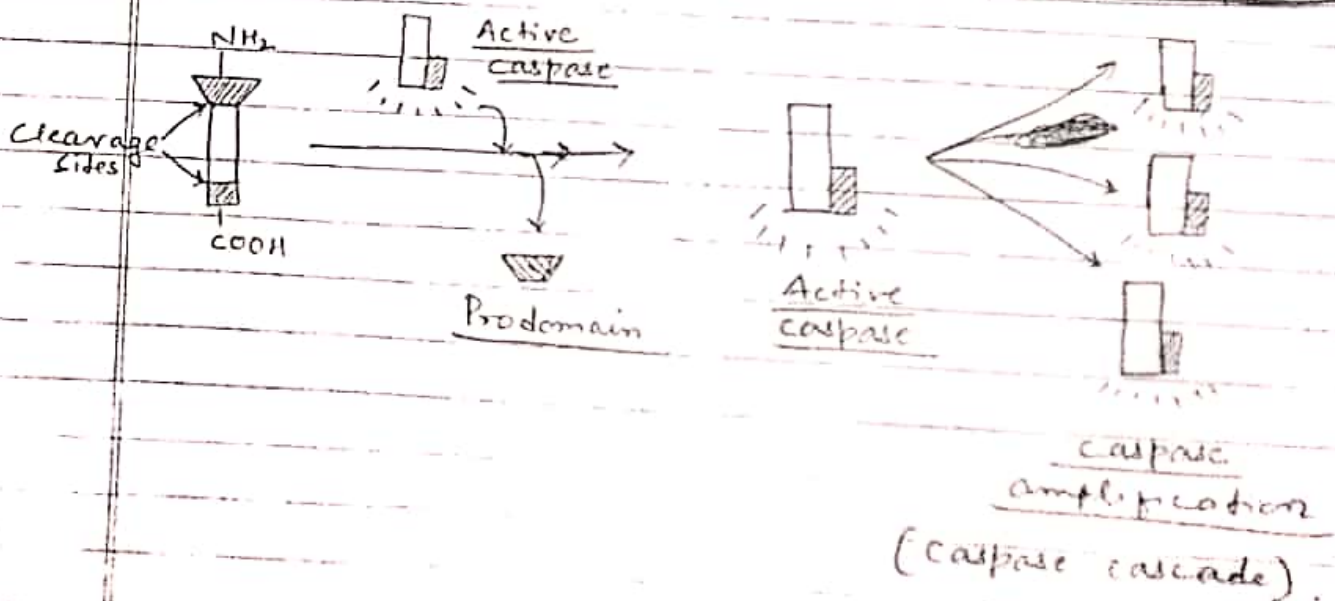 NH₂
Active
caspase
Cleavage
Sides
COOH
Prodomain
Active
caspase
Caspase
amplification
(Caspase cascade).